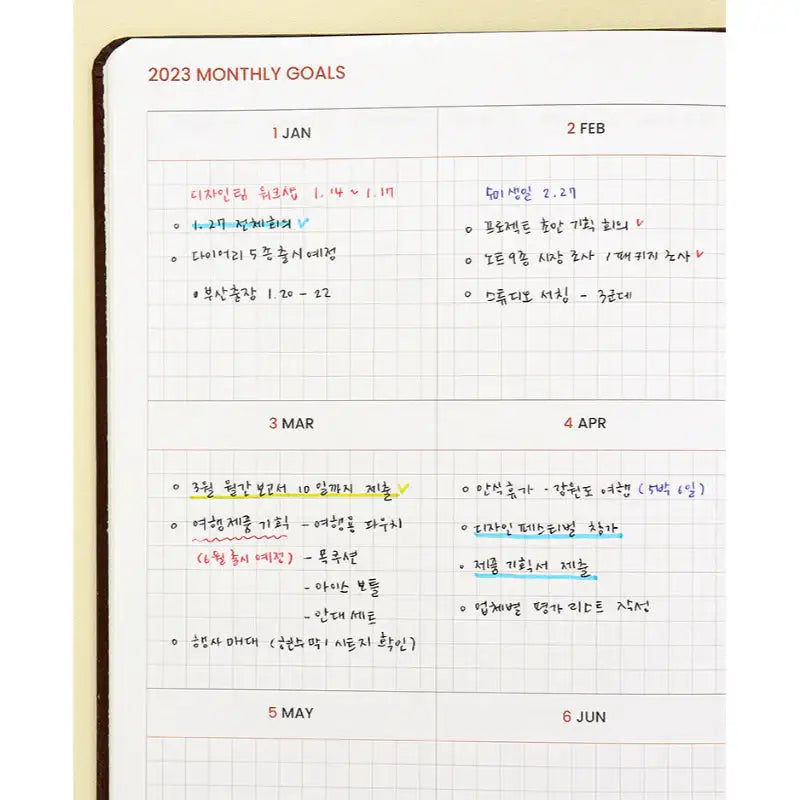 2023 MONTHLY GOALS
1 JAN
디자인팀 워크샵 1.14 ~ 1.17
1.27 전체회의
다이어리 5종 출시예정
부산출장 1.20 - 22
2 FEB
수미생일 2.27
프로젝트 호안 기획 회의
노트9종 시장 조사 / 패키지 조사
스튜디오 서칭 - 3군데
3 MAR
3월 월간보고서 10일까지 제출
여행제품 기획 - 여행용 파우치
(6월 출시 예정) - 목쿠션
- 아이스 보틀
- 안대 세트
행사 매대 (현수막 / 시트지 확인)
4 APR
안식휴가 - 강원도 여행 (5박 6일)
디자인 페스티벌 참가
제품 기획서 제출
업체별 평가 리스트 작성
5 MAY
6 JUN